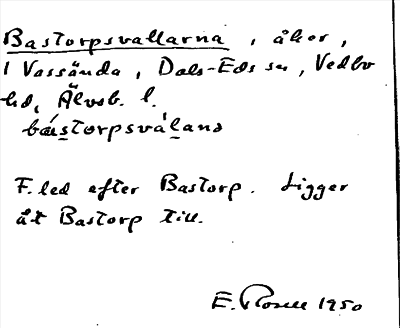 Bastorpsvallarna, åker,
1 Vassända, Dals-Eds sn, Vedbo
hd, Älvsb. l.
bástorpsvàlana
F. led efter Bastorp. Ligger
åt Bastorp till.
E. Rosell 1950